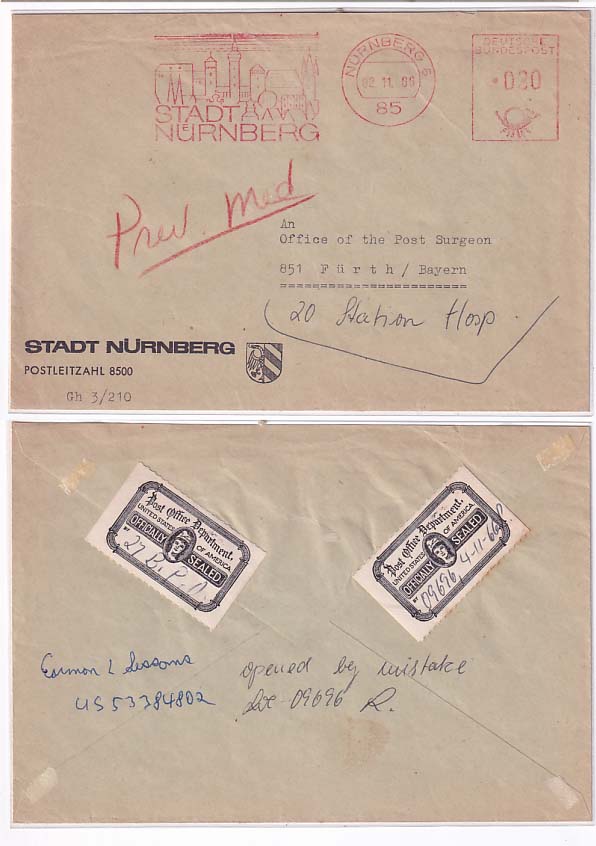 STADT
NÜRNBERG
NÜRNBERG 5
02.11.66
85
DEUTSCHE
BUNDESPOST
*080
Prev. Med
An
Office of the Post Surgeon
851 Fürth/Bayern
20 Station Hosp.
STADT NÜRNBERG
POSTLEITZAHL 8500
Gh 3/210
Post Office Department.
UNITED STATES OF AMERICA
OFFICIALLY SEALED
BY
Post Office Department.
UNITED STATES OF AMERICA
OFFICIALLY SEALED
BY 09696 4-11-66
Earmon L Sessoms
US53384802
opened by mistake
09696 R.